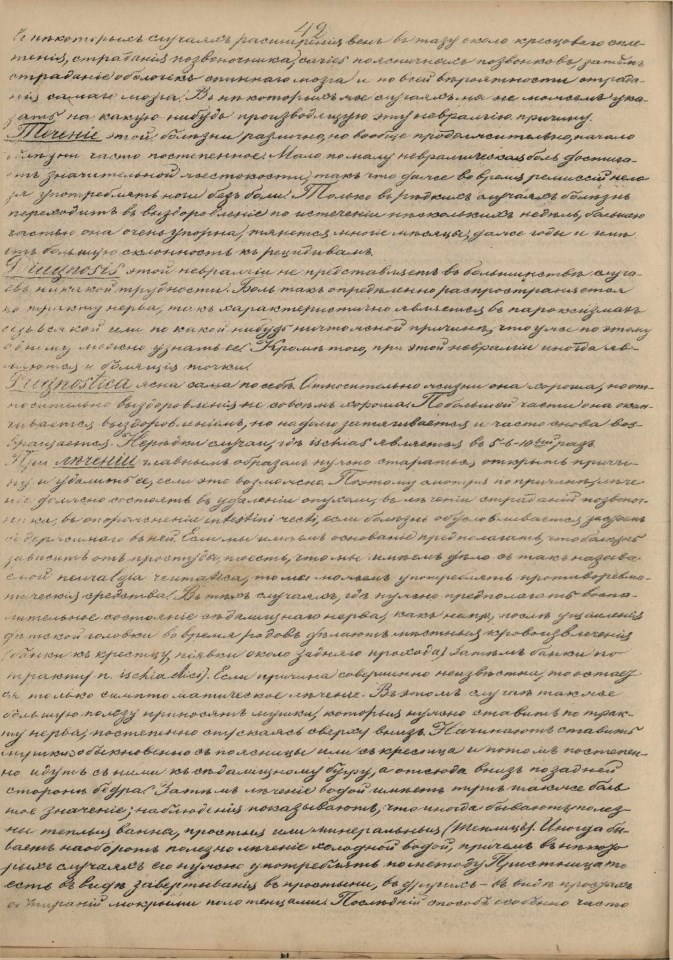 42
въ нѣкоторыхъ случаяхъ расширенія венъ въ тазу около кресцоваго спле-
тенія, страданія позвоночника, caries поясничныхъ позвонковъ, затѣмъ
страданіе оболочекъ спиннаго мозга и по всей вѣроятности страда-
нія самаго мозга. Въ нѣкоторыхъ же случаяхъ мы не можемъ ука-
зать на какую нибудь производящую эту невралгію причину.
Теченіе этой болѣзни различно, но вообще продолжительно, начало
болѣзни часто постепенное. Мало по малу невралгическая боль достига-
етъ значительной жестокости, такъ что даже во время ремиссій нель-
зя употреблять ноги безъ боли. Только въ рѣдкихъ случаяхъ болѣзнь
переходитъ въ выздоровленіе по истеченіи нѣсколькихъ недѣль, большею
частью она очень упорна, тянется многіе мѣсяцы, даже годы и имѣ-
етъ большую склонность къ рецидивамъ.
Diagnosis этой невралгіи не представляетъ въ большинствѣ случа-
евъ никакой трудности. Боль такъ опредѣленно распространяется
по тракту нерва, такъ характеристично является въ пароксизмахъ
безъ всякой или по какой нибудь ничтожной причинѣ, что уже по этому
одному можно узнать ее. Кромѣ того, при этой невралгіи иногда яв-
ляются и болящія точки.
Prognostica ясна сама по себѣ. Относительно жизни она хороша, но от-
носительно выздоровленія не совсѣмъ хороша. По большой части она окан-
чивается выздоровленіемъ, но надолго затягивается и часто снова воз-
вращается. Нерѣдки случаи, гдѣ ischias является въ 5-6-10тый разъ.
При лѣченіи главнымъ образомъ нужно стараться открыть причи-
ну и удалить ее, если это возможно. Поэтому смотря по причинѣ, лѣче-
ніе должно состоять въ удаленіи опухоли, въ лѣченіи страданій позвоноч-
ника, въ опорожненіи intestini recti, если болѣзнь обусловливается
содержимаго въ ней. Если мы имѣемъ основаніе предполагать, что болѣзнь
зависитъ отъ простуды, то есть, что мы имѣемъ дѣло съ такъ называе-
мой neuralgia rheumatica, то мы можемъ употреблять противоревма-
тическія средства. Въ тѣхъ случаяхъ, гдѣ нужно предполагать воспа-
лительное состояніе сѣдалищнаго нерва, какъ напр. послѣ ущемленія
дѣтской головки во время родовъ дѣлаютъ мѣстныя кровоизвлеченія
(банки къ крестцу, піявки около задняго прохода, затѣмъ банки по
тракту n. ischiadici). Если причина совершенно неизвѣстна, то остает-
ся только симптоматическое лѣченіе. Въ этомъ случаѣ также
большую пользу приносятъ мушки, которыя нужно ставить по трак-
ту нерва, постепенно спускаясь сверху внизъ. Начинаютъ ставить
мушки обыкновенно съ поясницы или съ крестца и потомъ постепен-
но идутъ съ ними къ сѣдалищному бугру, а отсюда внизъ по задней
сторонѣ бедра. Затѣмъ лѣченіе водой имѣетъ тутъ также боль-
шое значеніе; наблюденія показываютъ, что иногда бываютъ полез-
ны теплыя ванны, простыя или минеральныя (Теплицъ). Иногда бы-
ваетъ наоборотъ полезно лѣченіе холодной водой, причемъ въ нѣкото-
рыхъ случаяхъ его нужно употреблять по методу Присница то
есть въ видѣ завертыванія въ простыни, въ другихъ – въ видѣ простыхъ
обтираній мокрыми полотенцами. Послѣдній способъ особенно часто